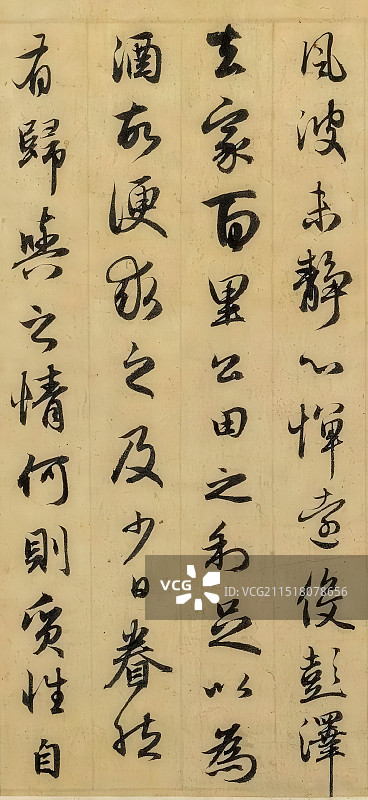 風波未靜心憚遠役彭澤
去家百里公田之利足以為
酒故便求之及少日眷然
有歸與之情何則質性自
VCG
ID:VCG211518078656